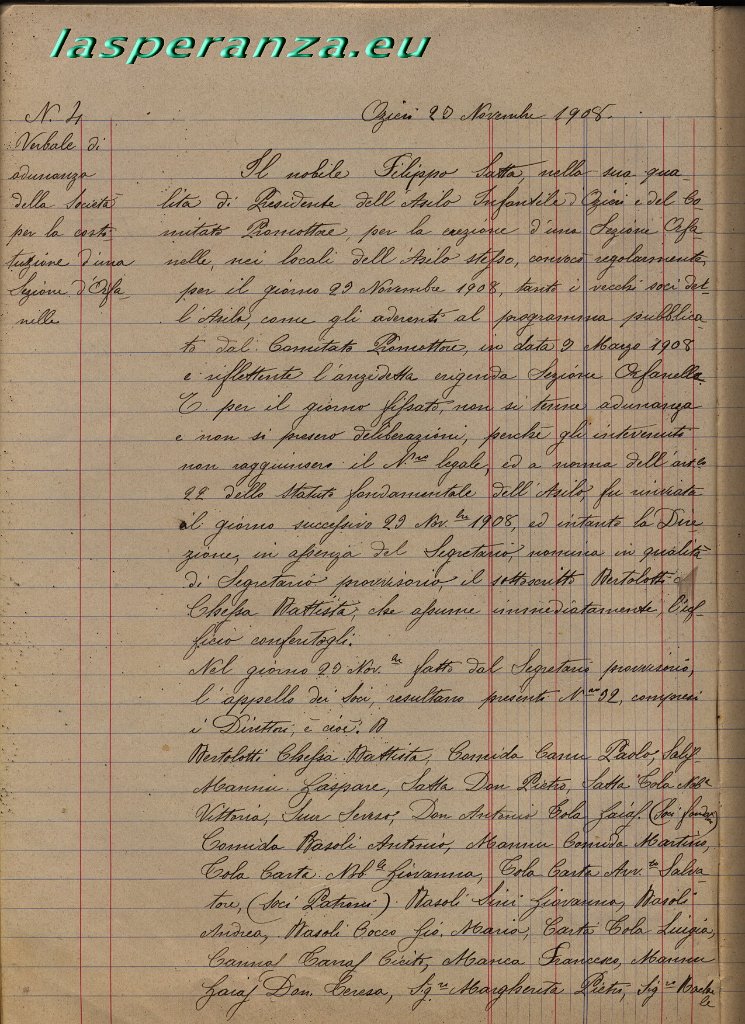 lasperanza.eu
N. 4
Ozieri 29 Novembre 1908.
Verbale di
adunanza
della Società
per la costi-
tuzione d'una
Sezione d'Orfa-
nelle
Il nobile Filippo Satta, nella sua qua-
lità di Presidente dell'Asilo Infantile d'Ozieri e del Co-
mitato Promottore, per la erezione d'una Sezione Orfa-
nelle, nei locali dell'Asilo stesso, convocò regolarmente,
per il giorno Novembre 1908, tanto i vecchi soci del-
l'Asilo, come gli aderenti al programma pubblica-
to dal Comitato Promottore, in data 9 Marzo 1908
e riflettente l'anzidetta erigenda Sezione Orfanelle.
E per il giorno fissato, non si tenne adunanza
e non si presero deliberazioni, perchè gli intervenuti
non raggiunsero il N.ro legale, ed a norma dell'art.lo
22 dello statuto fondamentale dell'Asilo, fu inviata
il giorno successivo 29 Nov.bre 1908, ed intanto la Dire-
zione, in assenza del Segretario, nomina in qualità
di Segretario provvisorio, il sottoscritto Bertolotti
Chessa Battista, che assume immediatamente, l'uf-
ficio conferitogli.
Nel giorno 29 Nov.bre fatto dal Segretario provvisorio,
l'appello dei Soci, resultano presenti N.ro 92, compresi
i Direttori, e cioè:
Bertolotti Chessa Battista, Comida Canu Paolo,
Mannu Gaspare, Satta Don Pietro, Satta Tola Nob.e
Vittoria, Suor Don Antonio Tola (Soci
Comida Basoli Antonio, Mannu Comida Martino,
Tola Carta Nob.le Giovanna, Tola Carta Avv.to Salva-
tore, (Soci Patroni) Basoli Sini Giovanna, Basoli
Andrea, Basoli Cocco Gio. Maria, Carta Tola Luigia,
Cicito, Manca Francesco, Mannu
Don. Teresa, Sig.ra Margherita Pietri, Sig.ra